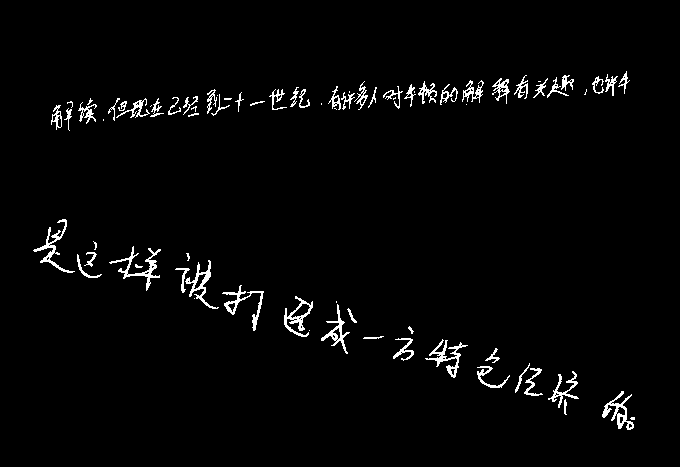 解读.但现在已经到二十一世纪.有许多人对牛顿的解释有关趣,也许牛
是这样被打造成一方特色经济的。